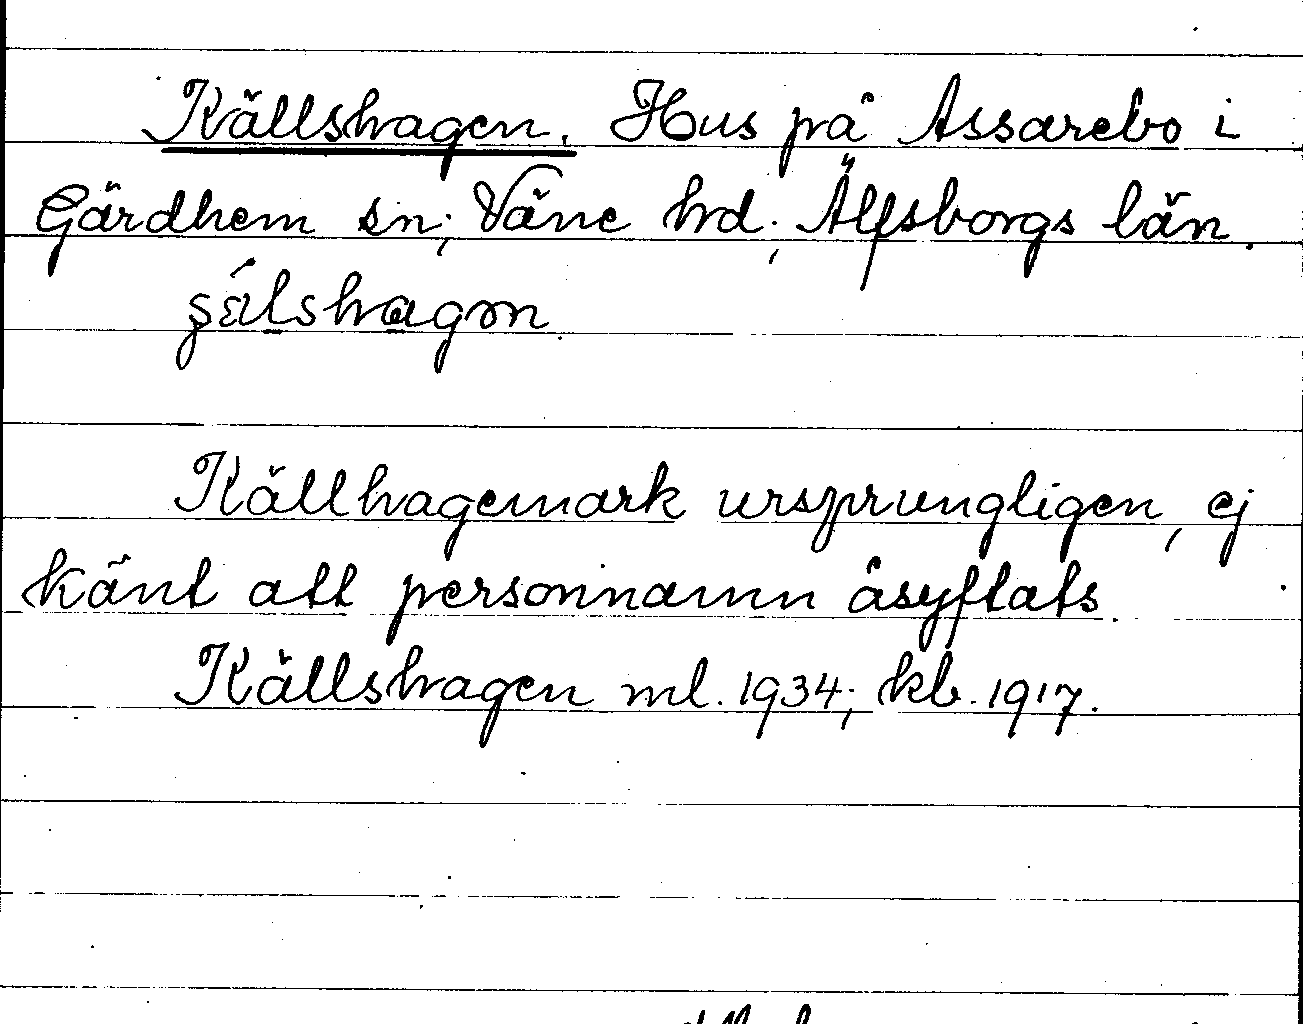 Källshagen. Hus på Assarebo i
Gärdhem sn; Väne hd; Älfsborgs län.
Källhagemark ursprungligen, ej
känt att personnamn åsyftats.
Källshagen ml. 1934; kb. 1917.